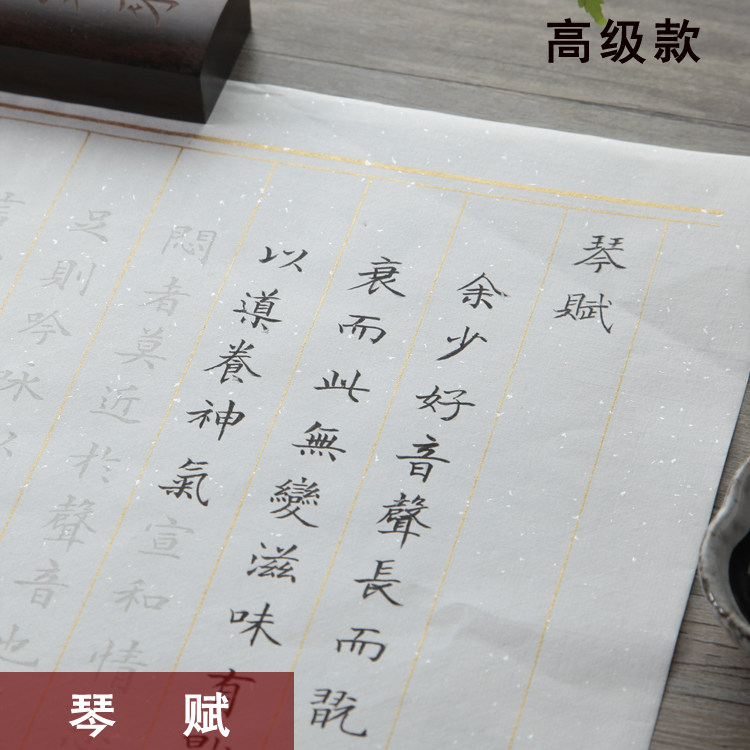 高级款
琴賦
余少好音聲長而翫
衰而此無變滋味有
以導養神氣
悶者莫近於聲音也
宣和情
足則吟詠以
琴 赋